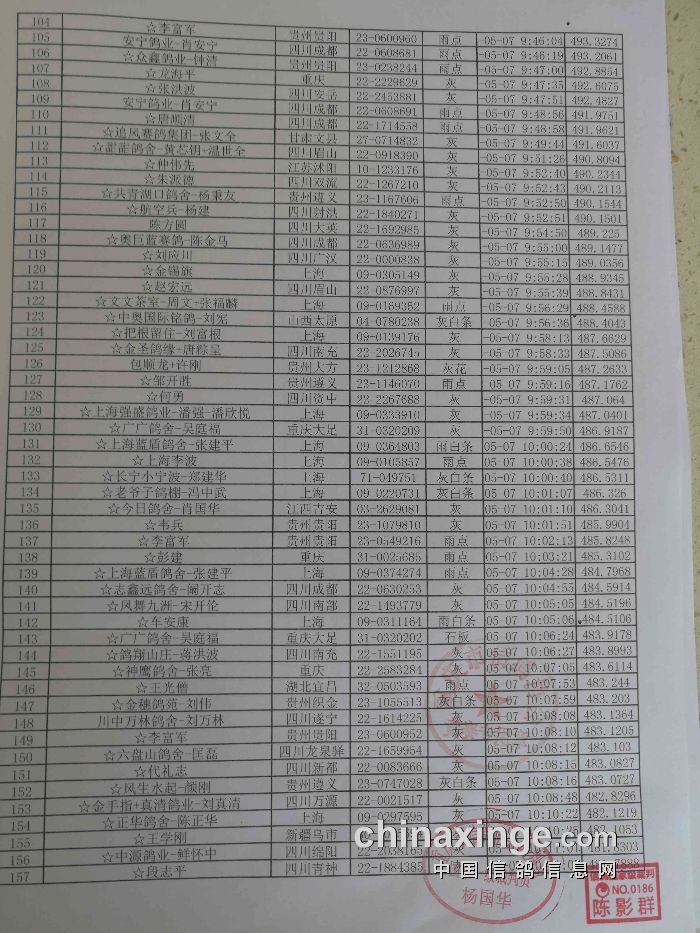 104 ☆李富军 贵州贵阳 23-0600960 雨点 -05-07 9:46:04 493.3274
105 安宁鸽业-肖安宁 四川成都 22-0608681 雨点 -05-07 9:46:19 493.2061
106 ☆众鑫鸽业-钟清 贵州贵阳 23-0238244 雨点 -05-07 9:47:00 492.8854
107 ☆龙海平 重庆 22-2229629 灰 -05-07 9:47:35 492.6075
108 ☆张洪波 四川安岳 22-2453881 灰 -05-07 9:47:51 492.4827
109 安宁鸽业-肖安宁 四川成都 22-0608691 雨点 -05-07 9:48:56 491.9751
110 ☆唐顺清 四川成都 22-1714558 雨点 -05-07 9:48:58 491.9621
111 ☆追风赛鸽集团-张文全 甘肃文县 27-0714832 灰 -05-07 9:49:44 491.6037
112 ☆甜甜鸽舍-黄芯钥+温世全 四川眉山 22-0918390 灰 -05-07 9:51:26 490.8094
113 ☆仲伟先 江苏沭阳 10-1233176 灰 -05-07 9:52:40 490.2344
114 ☆朱派德 四川双流 22-1267210 灰 -05-07 9:52:43 490.2113
115 ☆共青湖口鸽舍-杨秉友 贵州遵义 23-1167606 雨点 -05-07 9:52:50 490.1544
116 ☆航空兵-杨建 四川射洪 22-1840271 灰 -05-07 9:52:51 490.1501
117 陈方圆 四川大英 22-1692985 灰 -05-07 9:54:50 489.225
118 ☆奥巨蓝赛鸽-陈金马 四川成都 22-0636989 灰 -05-07 9:55:00 489.1477
119 ☆刘应川 四川广汉 22-0000838 灰 -05-07 9:55:15 489.0356
120 ☆金锡旗 上海 09-0305149 灰 -05-07 9:55:28 488.9345
121 ☆赵宏远 四川眉山 22-0876997 灰 -05-07 9:55:39 488.8431
122 ☆文文茶室-周文-张福麟 上海 09-0169352 雨点 -05-07 9:56:29 488.4588
123 ☆中奥国际铭鸽-刘宪 山西太原 04-0780238 灰白条 -05-07 9:56:36 488.4043
124 ☆把根留住-刘富根 上海 09-0139176 灰 -05-07 9:58:13 487.6629
125 ☆金圣鸽缘+唐称皇 四川南充 22-2026745 灰 -05-07 9:58:33 487.5086
126 包顺龙+许刚 贵州大方 23-1212868 灰花 -05-07 9:59:05 487.2633
127 ☆邹开胜 贵州遵义 23-1146070 雨点 -05-07 9:59:16 487.1762
128 ☆何勇 四川资中 22-2267688 灰 -05-07 9:59:31 487.064
129 ☆上海强盛鸽业-潘强-潘欣悦 上海 09-0333910 灰 -05-07 9:59:34 487.0401
130 ☆广广鸽舍-吴庭福 重庆大足 31-0320209 灰 -05-07 9:59:50 486.9187
131 ☆上海蓝盾鸽舍-张建平 上海 09-0364803 雨白条 05-07 10:00:24 486.6546
132 ☆上海李波 上海 09-0105857 雨点 05-07 10:00:38 486.5476
133 ☆长宁小宁波-郑建华 上海 71-049751 灰白条 05-07 10:00:40 486.5311
134 ☆老爷子鸽棚-冯中武 上海 09-0220731 灰白条 05-07 10:01:07 486.326
135 ☆今日鸽舍-肖国华 江西吉安 03-2629081 灰 05-07 10:01:10 486.3041
136 ☆韦兵 贵州贵阳 23-1079810 灰 05-07 10:01:51 485.9904
137 ☆李富军 贵州贵阳 23-0549216 雨点 05-07 10:02:13 485.8248
138 ☆彭建 重庆 31-0025685 雨点 05-07 10:03:21 485.3102
139 ☆上海蓝盾鸽舍-张建平 上海 09-0374274 雨点 05-07 10:04:28 484.7968
140 ☆志鑫远鸽舍-阚开志 四川成都 22-0630253 灰 05-07 10:04:55 484.5914
141 ☆凤舞九洲-宋开伦 四川南部 22-1493779 灰 05-07 10:05:05 484.5196
142 ☆车安康 上海 09-0311164 雨白条 05-07 10:05:06 484.5106
143 ☆广广鸽舍-吴庭福 重庆大足 31-0320202 石板 05-07 10:06:24 483.9178
144 ☆鸽翔山庄-蒋洪波 四川南充 22-1551195 灰 05-07 10:06:27 483.8993
145 ☆神鹰鸽舍-张亮 重庆 22-2583284 灰 05-07 10:07:05 483.6114
146 ☆王光僧 湖北宜昌 32-0503593 雨点 05-07 10:07:53 483.244
147 ☆金穗鸽苑-刘伟 贵州织金 23-1055513 灰白条 05-07 10:07:59 483.203
148 川中万林鸽舍-刘万林 四川遂宁 22-1614225 灰 05-07 10:08:08 483.1364
149 ☆李富军 贵州贵阳 23-0600952 灰 05-07 10:08:10 483.1205
150 ☆六盘山鸽舍-匡磊 四川龙泉驿 22-1659954 灰 05-07 10:08:12 483.103
151 ☆代礼志 四川新都 22-0083666 灰 05-07 10:08:15 483.0827
152 ☆风生水起-颜刚 贵州遵义 23-0747028 灰白条 05-07 10:08:16 483.0727
153 ☆金手指+真清鸽业-刘真清 四川万源 22-0021517 灰 05-07 10:08:48 482.8296
154 ☆正华鸽舍-陈正华 上海 09-0297595 10:10:22 482.1219
155 ☆王学刚 新疆乌市
156 ☆中源鸽业-鲜怀中 四川绵阳 22-2038165
157 ☆段志平 四川青神 22-1884385
chinaxinge.com
中国信鸽信息网
杨国华
NO.0186
陈影群